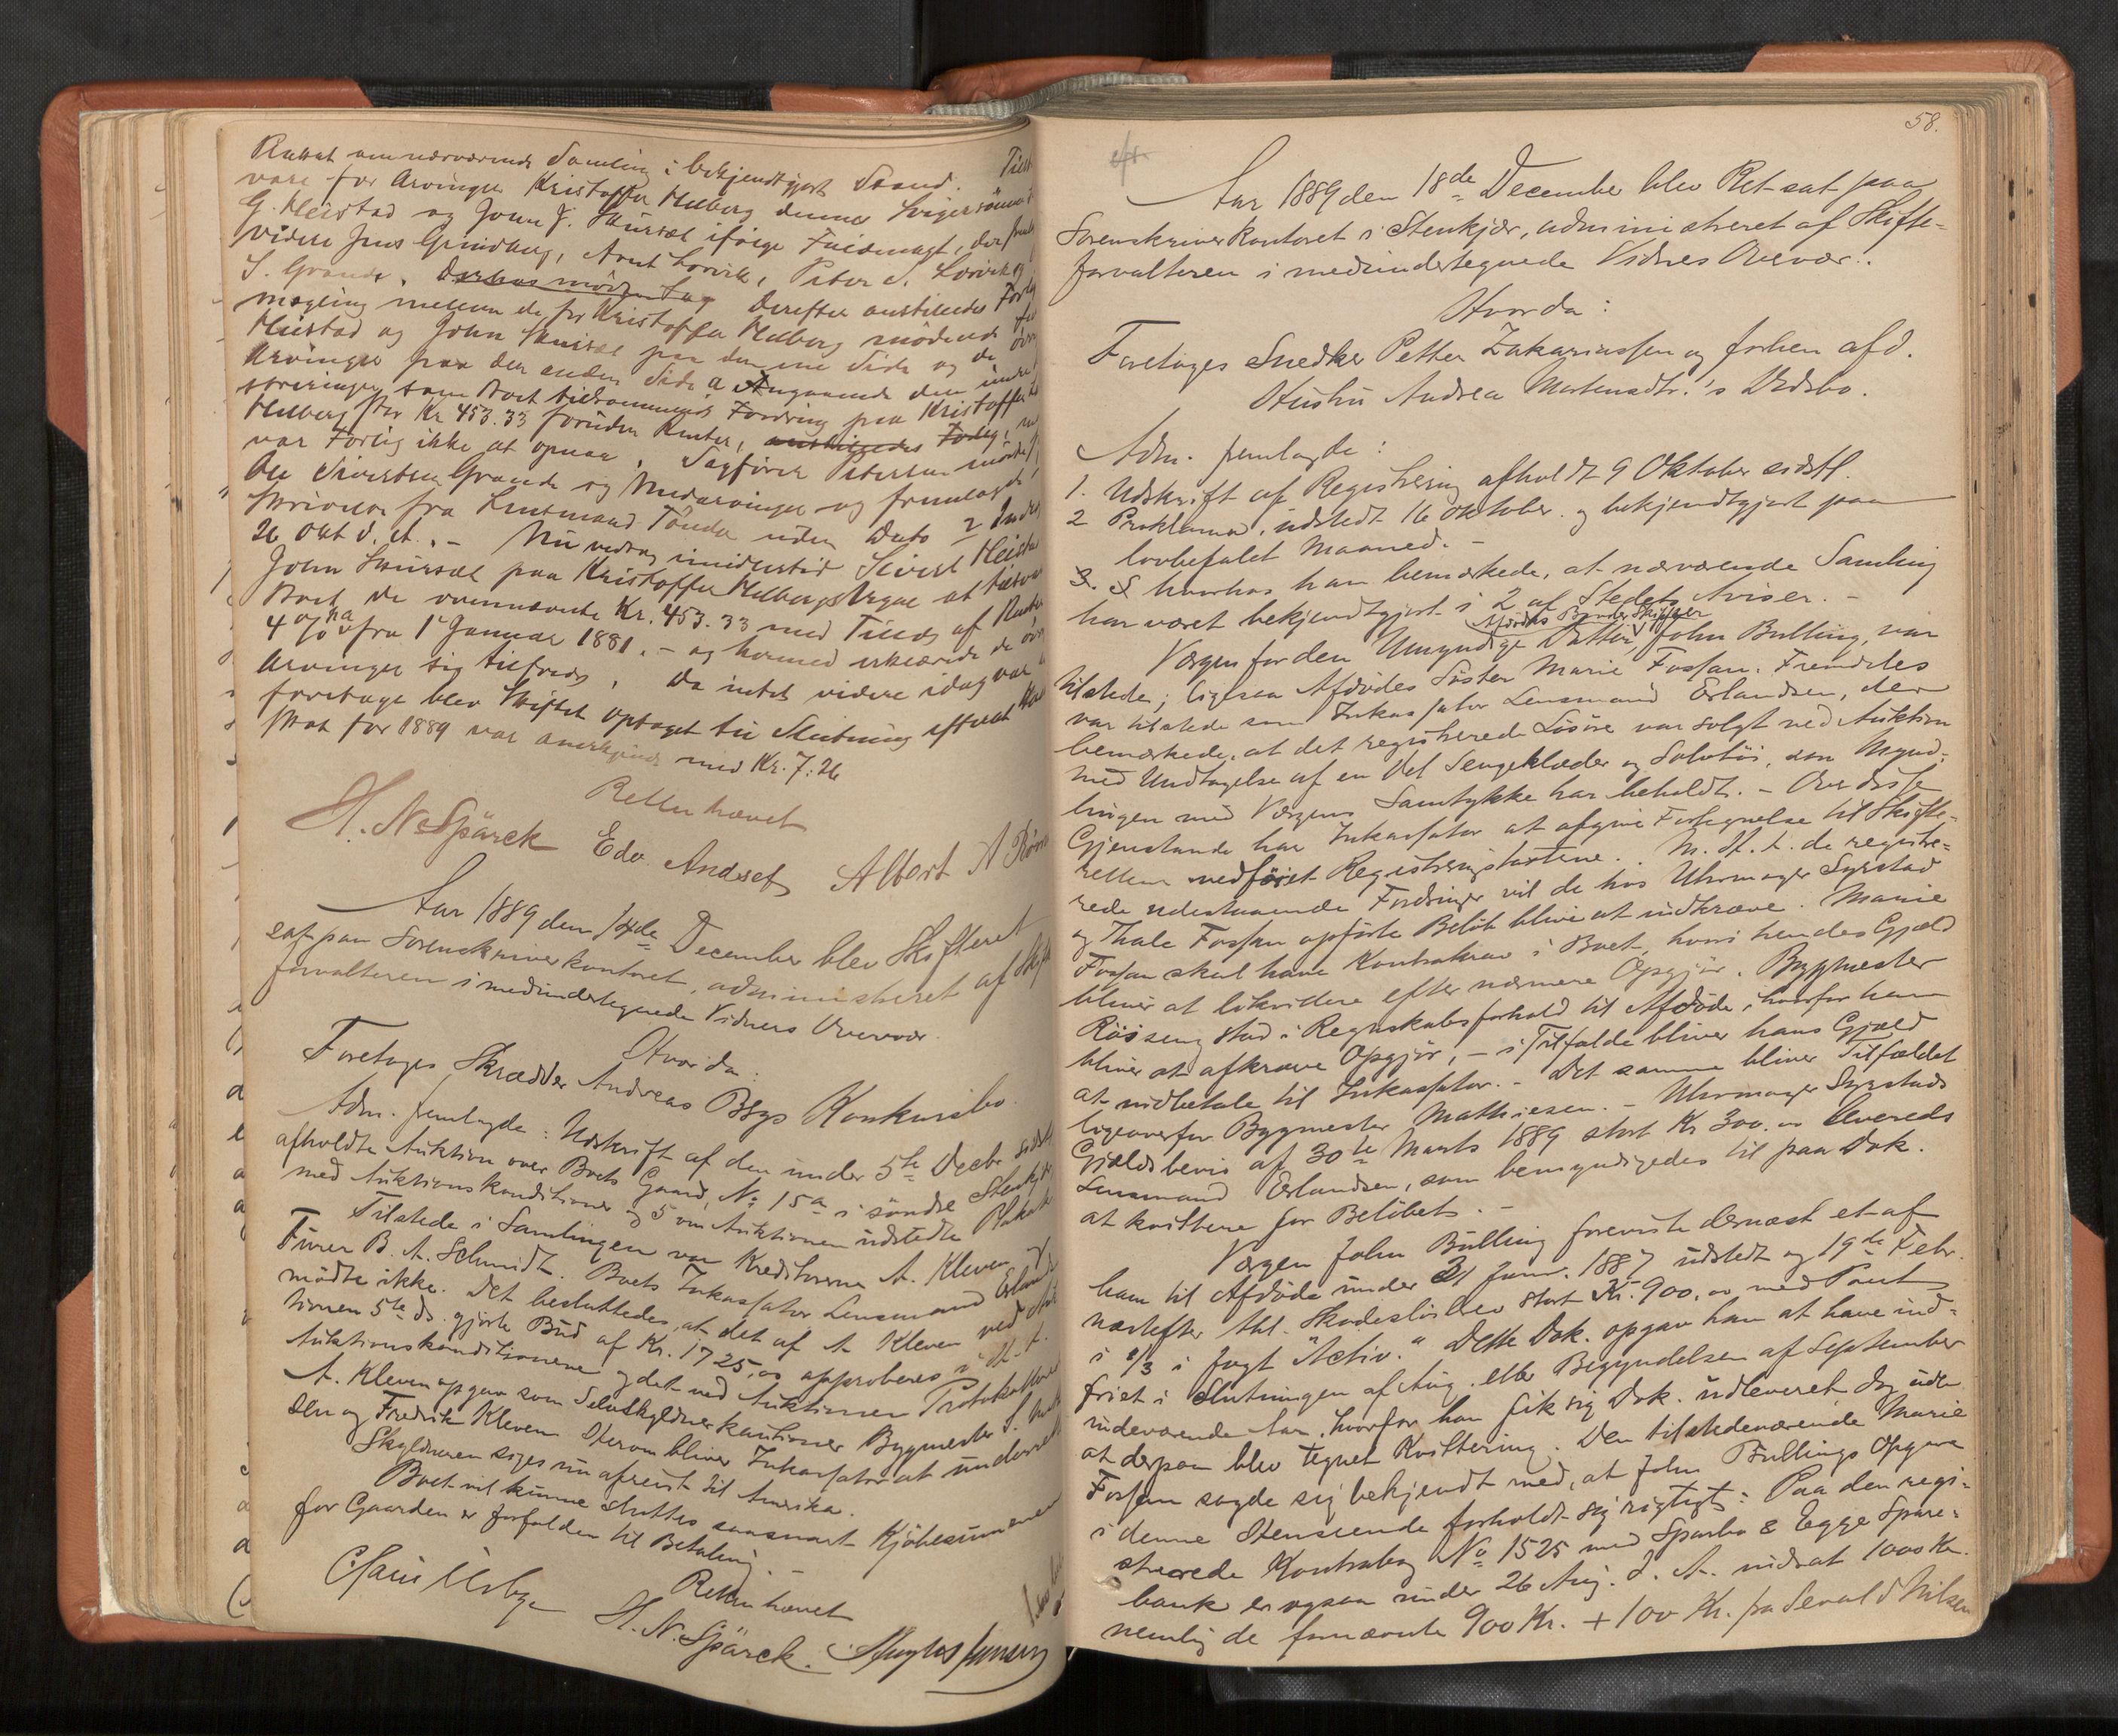 Rettet om nærværende Samling i bekjendtgjort Stand. Tilst
vare for Arvingen Kristoffer Helberg dennes Svigersønner
G. Heistad og John J. Skursæl ifølge Fuldmagt, der
videre Jens Grindberg, Arnt Lorvik, Peter S. Lorvik og
S. Grande. Derhos mødte Sag Derefter anstilledes Forlig
mægling mellem de for Kristoffer Helberg mødende
Heistad og John Skursæl paa den ene Side og de øvr
Arvinger paa den anden Side Angaaende den under
streringen som Boet tilkommende Fordring paa Kristoffer
Helberg stor Kr 453.33 foruden Renter, anstilledes Forlig,
var Forlig ikke at opnaa. Sagfører Petersen mødte f
Ole Sivertsen Grande og Medarvinger og fremlagde
Skrivelse fra Lensmand Tønder uden Dato 2
26 Okt d. A. - Nu vedtog imidlertid Sivert Heista
John Skursæl paa Kristoffer Helbergs Vegne at tilsvare
Boet de ovennævnte Kr. 453.33 med Tillæg af Renter
4% pa fra 1 Januar 1881. - og hermed erklærede de øvr
Arvinger sig tilfreds. Da intet videre idag var
foretage blev Skiftet optaget til Slutning efterat
skat for 1889 var anerkjendt med Kr. 7.26
Retten hævet
H. N Spärck Edv. Andsets Albert A
Aar 1889 den 14de December blev Skifteret
sat paa Sorenskriverkontoret, administreret af Skifte
forvalteren i medundertegnede Vidners Overvær.
Hvorda:
Foretoges Skrædder Andreas Bsys Konkursbo.
Adm. fremlagde: Udskrift af den under 5te Decbr sidstl
afholdte Auktion over Boets Gaard, No 15a i søndre Stenkjær
med Auktionskonditioner og 5 om Auktionen udstedte Plakate
Tilstede i Samlingen var Kreditorerne A. Kleven og
Furer B. A. Schmidt. Boets Inkassator Lensmand Erlands
mødte ikke. Det besluttedes, at det af A Kleven ved Auk
tionen 5te ds. gjorte Bud af Kr. 1725,00 approberes i H. t.
Auktionskonditionerne og det ved Auktionen Protokollerede
A. Kleven opgav som Selvskyldnerkautioner Bygmester S.
sen og Fredrik Kleven. Herom bliver Inkassator at underrette
Skyldneren siges nu afreist til Amerika.
Boet vil kunne sluttes saasnart Kjøbesummen
for Gaarden er forfalden til Betaling
Retten hævet
H. N. Spärck. Jensen
58.
Aar 1889 den 18de December blev Ret sat paa
Sorenskriverkontoret i Stenkjær, administreret af Skifte-
forvalteren i medundertegnede Vidners Overvær.
Hvorda:
Foretoges Snedker Petter Zakariassen og forhen afd.
Hustru Andrea Mortensdtr.'s Dødsbo.
Adm. fremlagde:
1. Udskrift af Registrering afholdt 9 Oktober sidstl.
2 Proklama, udstedt 16 Oktober og bekjendtgjort paa
lovbefalet Maaned. -
3. hvorhos han bemærkede, at nærværende Samling
har været bekjendtgjort i 2 af Stedets Aviser. -
Afdødes Broder Skipper
Værgen for den Umyndige Datter, John Bulling, var
tilstede; ligesaa Afdødes Søster Marie Fossan. Fremdeles
var tilstede som Inkassator Lensmand Erlandsen, der
bemærkede, at det registrerede Løsøre var solgt ved Auktion
med Undtagelse af en Del Sengeklæder og Sølvtøi, som Mynd-
lingen med Værgens Samtykke har beholdt. - Over disse
Gjenstande har Inkassator at afgive Fortegnelse til Skifte-
retten vedføiet Registreringstaxterne. . M. H. t. de registre-
rede udestaaende Fordringer vil de hos Uhrmager Syrstad
og Thale Fossan opførte Beløb blive at indkræve. Marie
Fossan skal have Kontrakrav i Boet, hvori hendes Gjæld
bliver at likvidere efter nærmere Opgjør. Bygmester
Røiseng stod i Regnskabsforhold til Afdøde, hvorfor ham
bliver at afkræve Opgjør, - i Tilfælde bliver hans Gjæld
at indbetale til Inkassator. - Det samme bliver Tilfældet
ligeoverfor Bygmester Mathiesen. - Uhrmager Syrstads
Gjældsbevis af 30te Marts 1889 stort Kr 300.00 leveredes
Lensmand Erlandsen, som bemyndigedes til paa Dok.
at kvittere for Beløbet. -
Værgen John Bulling foreviste dernæst et af
ham til Afdøde under 31 Janr. 1887 udstedt og 19de Febr.
næstefter thl. Skadesløsbrev stort Kr. 900,00 med Pant
i 1/3 i Jagt "Activ." Dette Dok. opgav han at have ind-
friet i Slutningen af Aug. eller Begyndelsen af September
indeværende Aar, hvorfor han fik sig Dok. udleveret dog uden
at derpaa blev tegnet Kvittering. Den tilstedeværende Marie
Fossan sagde sig bekjendt med, at John Bullings Opgave
i denne Henseende forholdt sig rigtigt: Paa den regi-
strerede Kontrabog No 1525 med Sparbo & Egge Spare-
bank er ogsaa under 26 Aug. d. A. indsat 1000 Kr.
nemlig de fornævnte 900 Kr. + 100 Kr. fra Sevald Nilsen